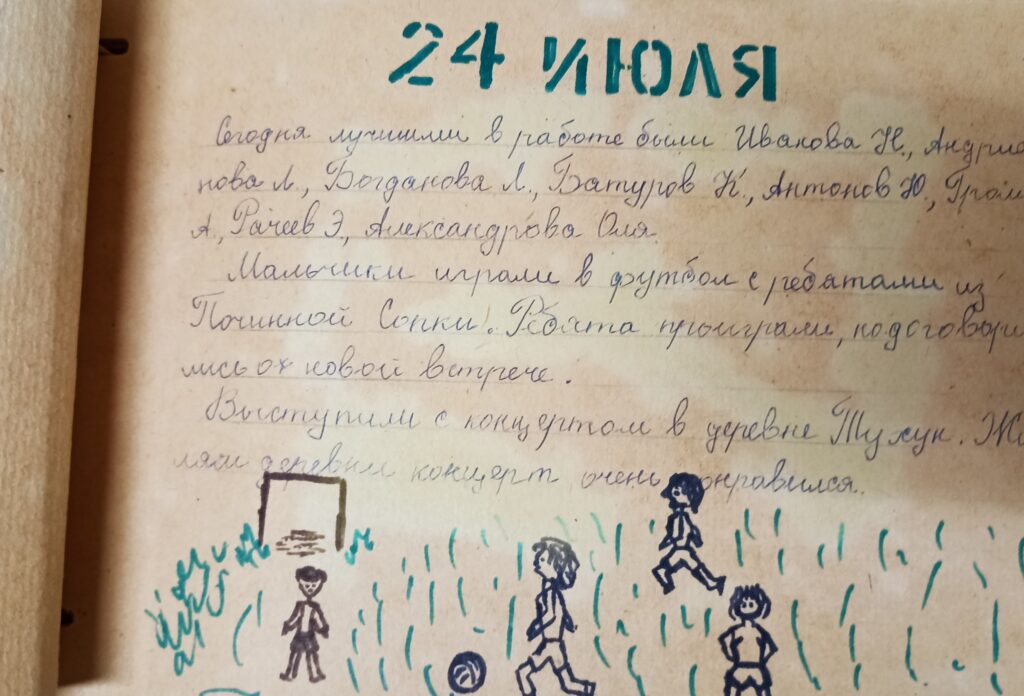 24 ИЮЛЯ
Сегодня лучшими в работе были Ивакова Н., Андриа
нова Л., Богданова Л., Батуров К., Антонов Ю., Гром
А., Рачеев Э., Александрова Оля.
Мальчики играли в футбол с ребятами из
Починной Сопки. Ребята проиграли, но договори
лись о новой встрече.
Выступили с концертом в деревне Тухун. Жи
лям деревни концерт очень понравился.